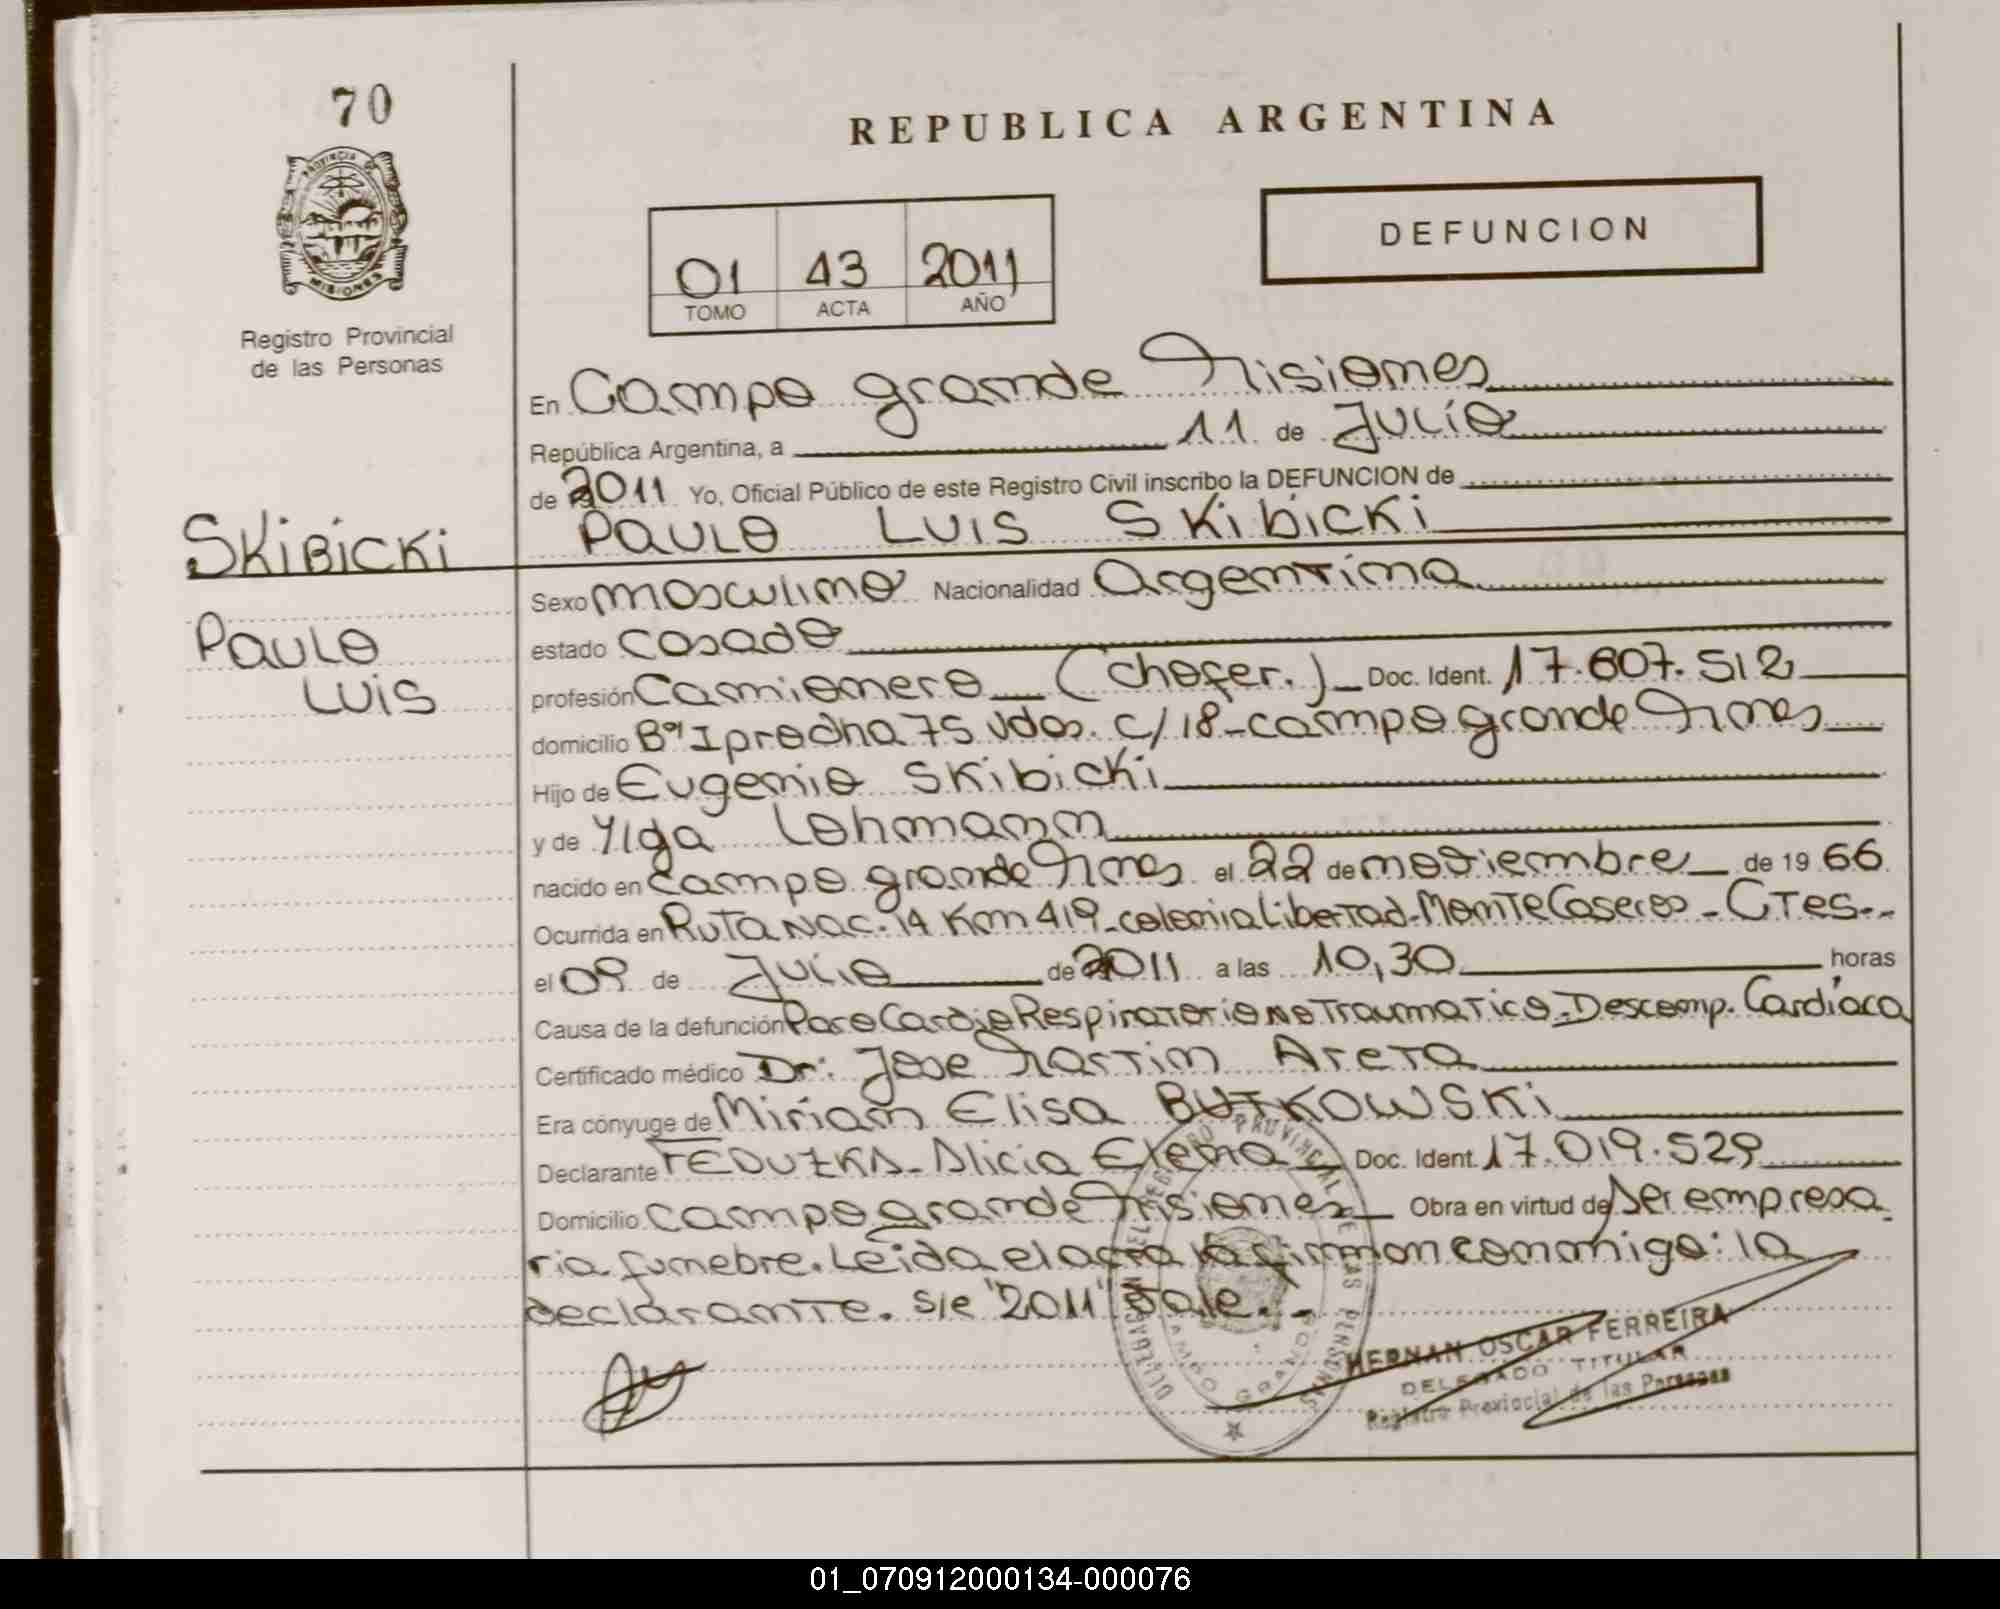 70
REPUBLICA ARGENTINA
PROVINCIA DE
MISIONES
Registro Provincial
de las Personas
DEFUNCION
01 43 2011
TOMO ACTA AÑO
En Campo grande Misiones
República Argentina, a 11 de Julio
de 2011 Yo, Oficial Público de este Registro Civil inscribo la DEFUNCION de
SKiBiCKi PAULO LUIS SKibiCKi
PAULO
LUIS
Sexo masculino Nacionalidad Argentina
estado casado
profesión Camionero (chofer.) Doc. Ident. 17.607.512
domicilio Bº Iprodha 75 vdas. c/18-campo grande Mnes
Hijo de Eugenio SKibicKi
y de Ylga Lohmann
nacido en campo grande Mnes el 22 de noviembre de 19 66
Ocurrida en Ruta Nac. 14 Km 419-colonia Libertad-Monte Caseros-CTes.-
el 09 de Julio de 2011 a las 10,30 horas
Causa de la defunción Paro Cardio Respiratorio No Traumatico-Descomp. Cardíaca
Certificado médico Dr: Jose Martin Areta
Era cónyuge de Miriam Elisa BUTKOWSKi
Declarante FEDUZKA-Alicia Elena Doc. Ident. 17.019.529
Domicilio campo grande Misiones Obra en virtud de ser empresa
ria funebre. Leida el acta la firman conmigo: la
declarante. s/e "2011" Vale.-
DELEGACION DEL REGISTRO PROVINCIAL DE LAS PERSONAS
CAMPO GRANDE
HERNAN OSCAR FERREIRA
DELEGADO TITULAR
Registro Provincial de las Personas
01_070912000134-000076